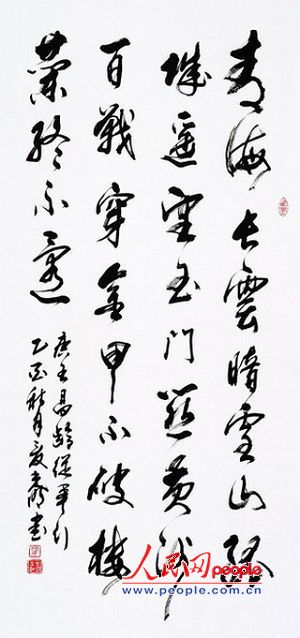 青海长雲暗雪山孤
城遥望玉门關黄沙
百戰穿金甲不破樓
蘭終不還
唐王昌齡從軍行
乙酉秋月書
人民网people
www.people.com.cn